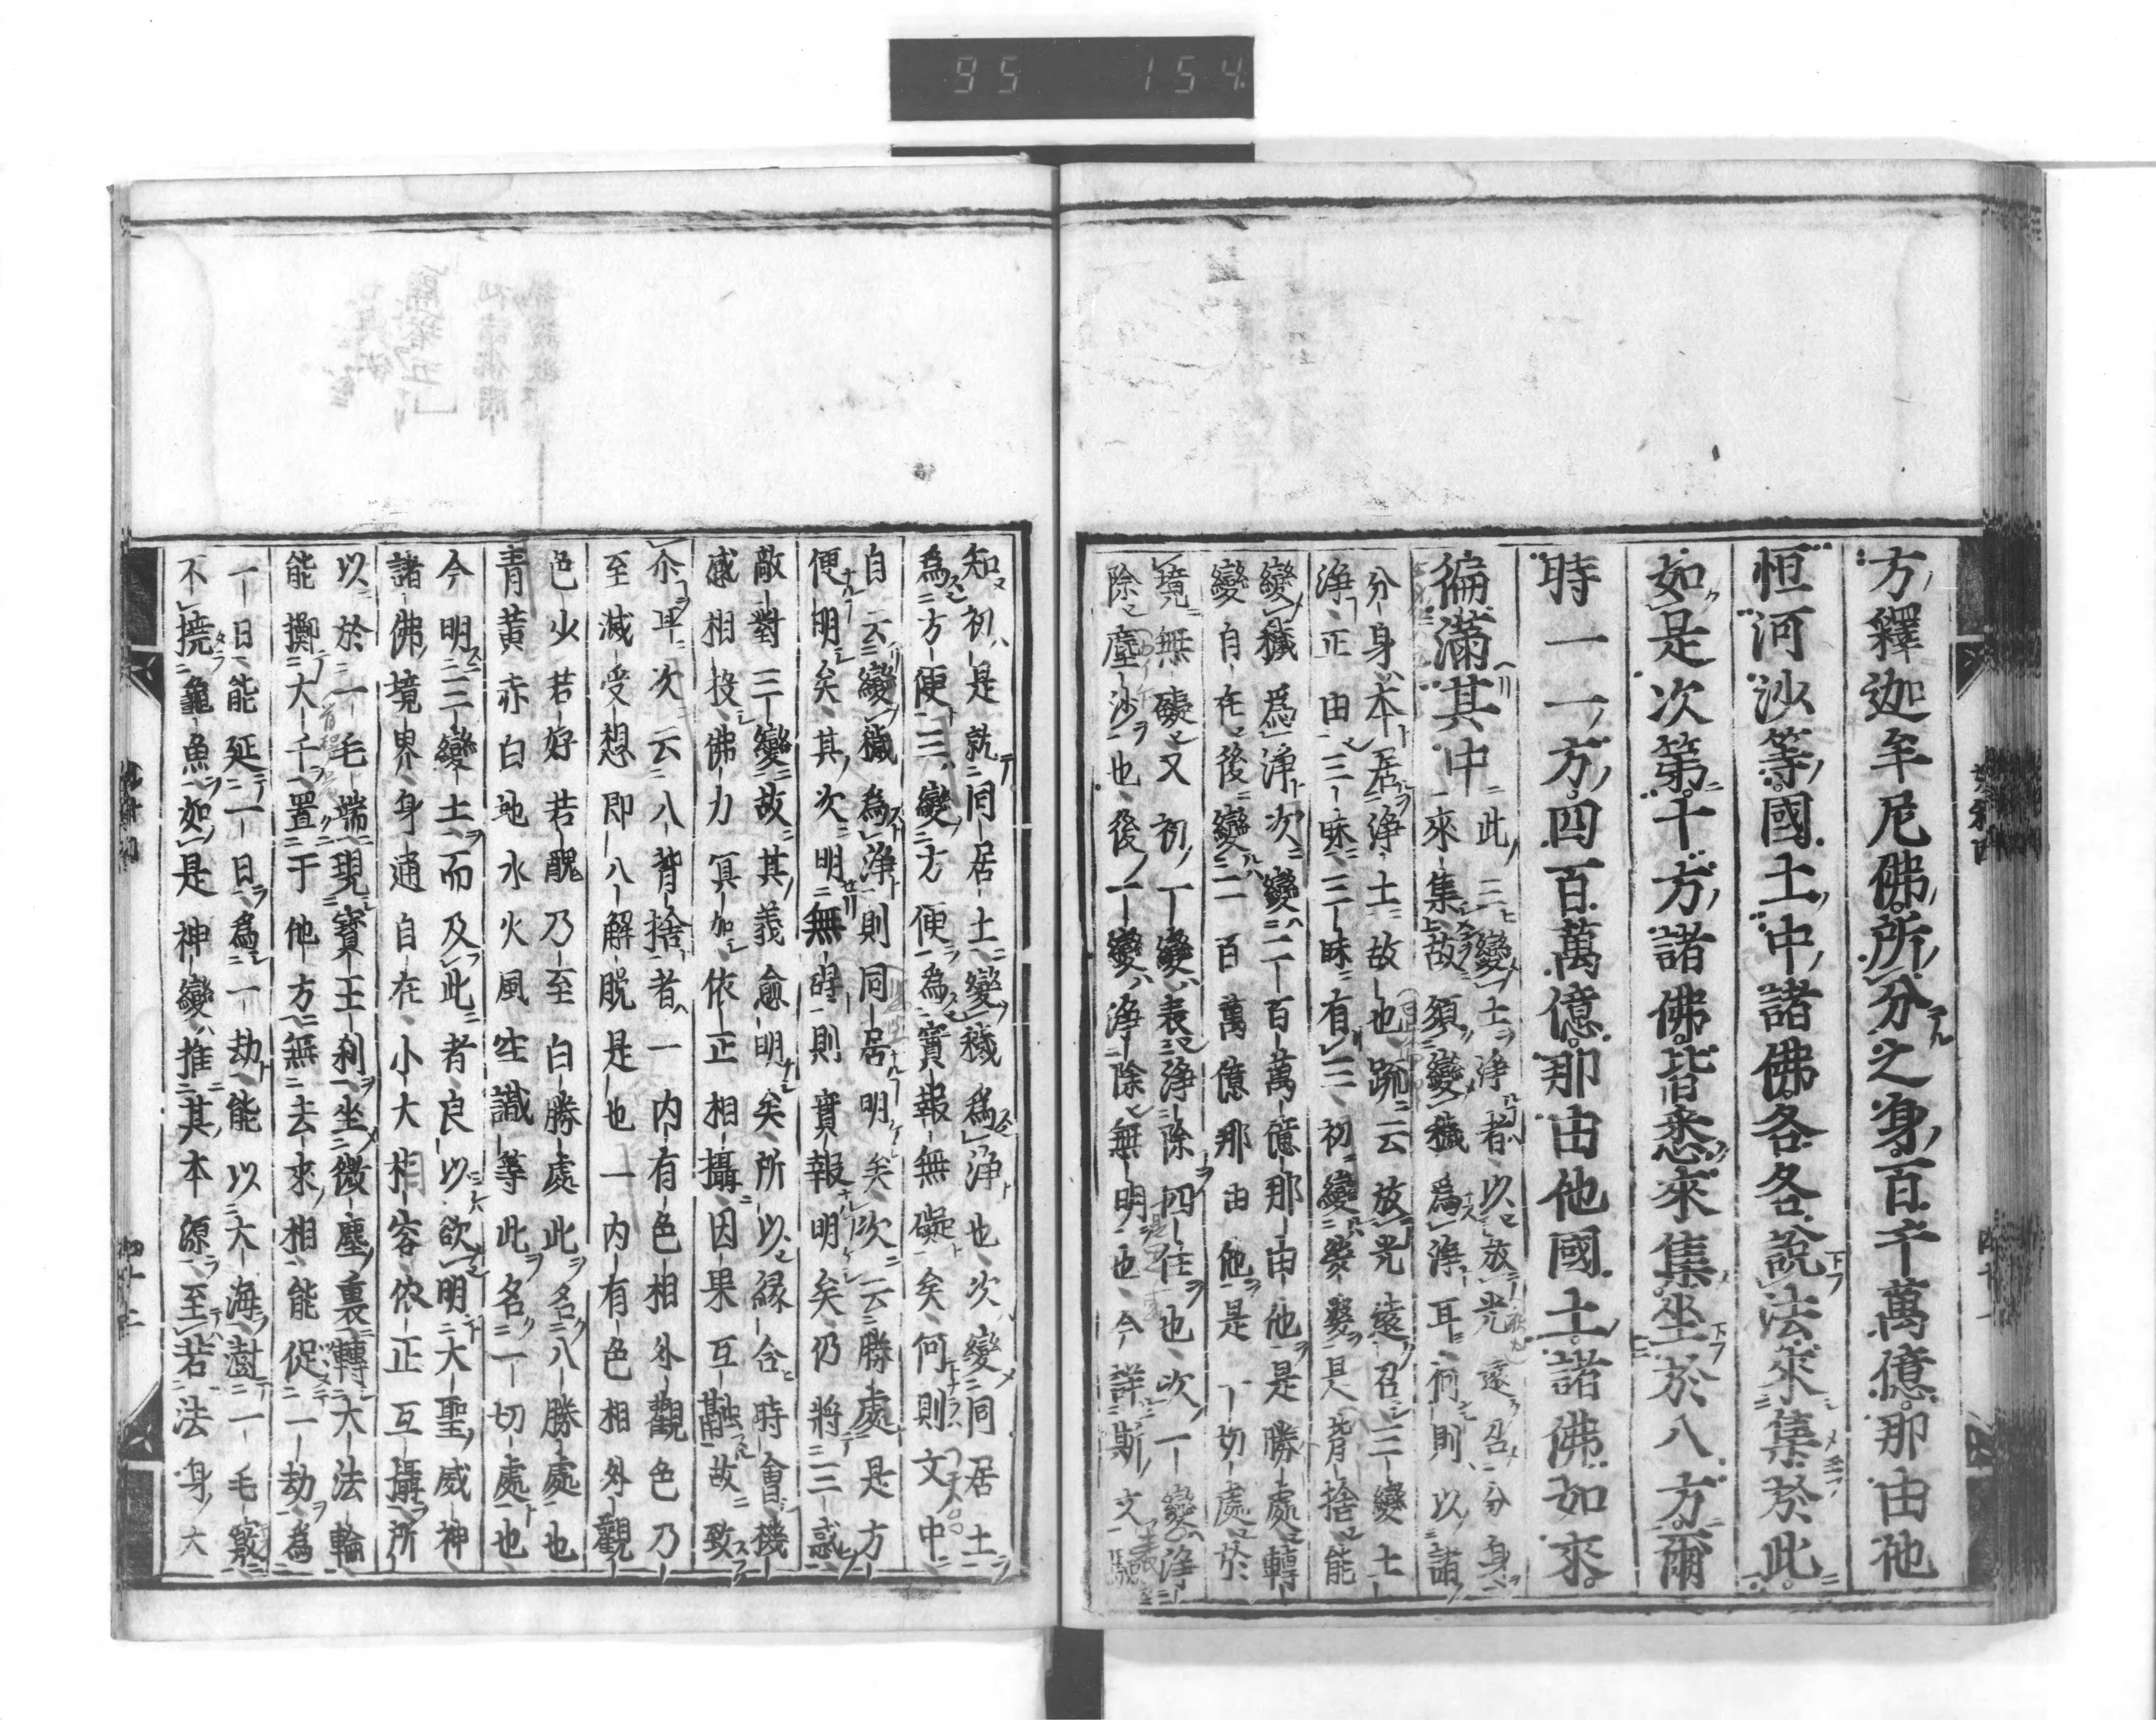 95 154
方釋迦牟尼佛所分之身百千萬億那由他
恒河沙等國土中諸佛各各說法來集於此
如是次第十方諸佛皆悉來集坐於八方爾
時一一方四百萬億那由他國土諸佛如來
徧滿其中此三變土淨者以放光遠召分身
來集故須變穢爲淨耳何則以諸
分身本居淨土故也䟽云放光遠召三變土
淨正由三昧三昧有三初變婆婆是背捨能
變穢爲淨次變二百萬億那由他是勝處轉
變自在後變二百萬億那由他是一切處於
境無礙又初一變表淨除四住也次一變淨
除塵沙也後一變淨除無明也今詳斯文
知初是就同居土變穢爲淨也次變同居土
為方便三變方便為實報無礙矣何則文中
自云變穢為淨則同居明矣次云勝處是方
便明矣其次明無礙則實報明矣仍將三惑
敵對三變故其義愈明矣所以緣合時會機
感相投佛力冥加依正相攝因果互融故致
尒耳次云八背捨者一內有色相外觀色乃
至滅受想即八解脫是也一內有色相外觀
色少若好若醜乃至白勝處此名八勝處也
青黃赤白地水火風空識等此名一切處也
今明三變土而及此者良以欲明大聖威神
諸佛境界身通自在小大相容依正互攝所
以於一毛端現寶王剎坐微塵裏轉大法輪
能擲大千置于他方無去來相能促一劫為
一日能延一日為一劫能以大海澍一毛竅
不撓龜魚如是神變推其本源至若法身大